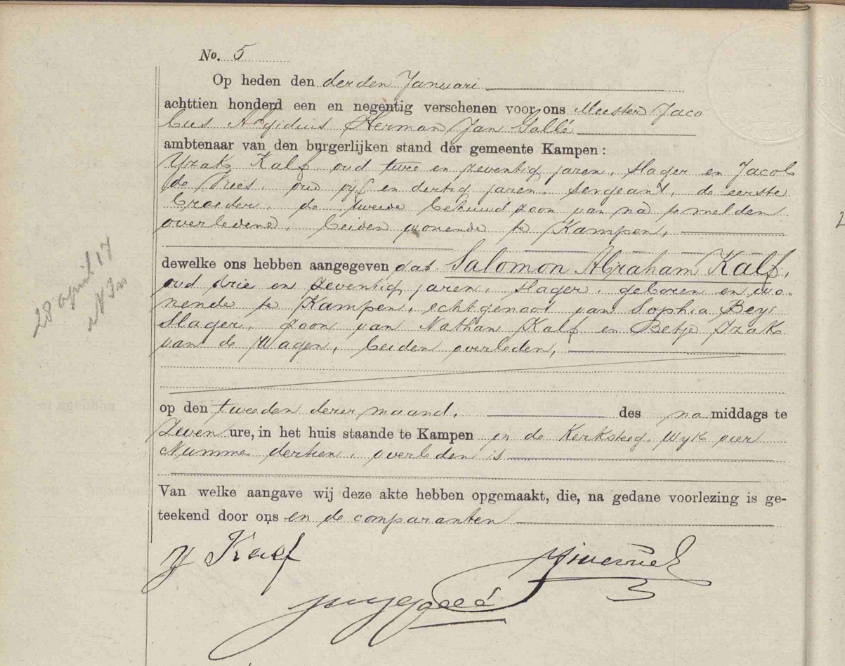 No. 5
Op heden den derden Januari
achttien honderd een en negentig verschenen voor ons Meester Jaco
bus Aegidius Herman Jan Gallé
ambtenaar van den burgerlijken stand der gemeente Kampen:
Yzak Kalf, oud twee en zeventig jaren, slager en Jacob
de Vries, oud vyf en dertig jaren, sergeant, de eerste
broeder, de tweede behuwdzoon van na te melden
overledene, beiden wonende te Kampen,
dewelke ons hebben aangegeven dat Salomon Abraham Kalf,
oud drie en zeventig jaren, slager, geboren en wo-
nende te Kampen, echtgenoot van Sophia
Slager, zoon van Nathan Kalf en Betje Yzak
van de Wagen, beiden overleden,
op den tweeden dezer maand, des na middags te
zeven ure, in het huis staande te Kampen in de Kerksteeg, Wyk vier
Nummer dertien, overleden is
Van welke aangave wij deze akte hebben opgemaakt, die, na gedane voorlezing is ge-
teekend door ons en de comparanten
Y Kalf
28 april 17